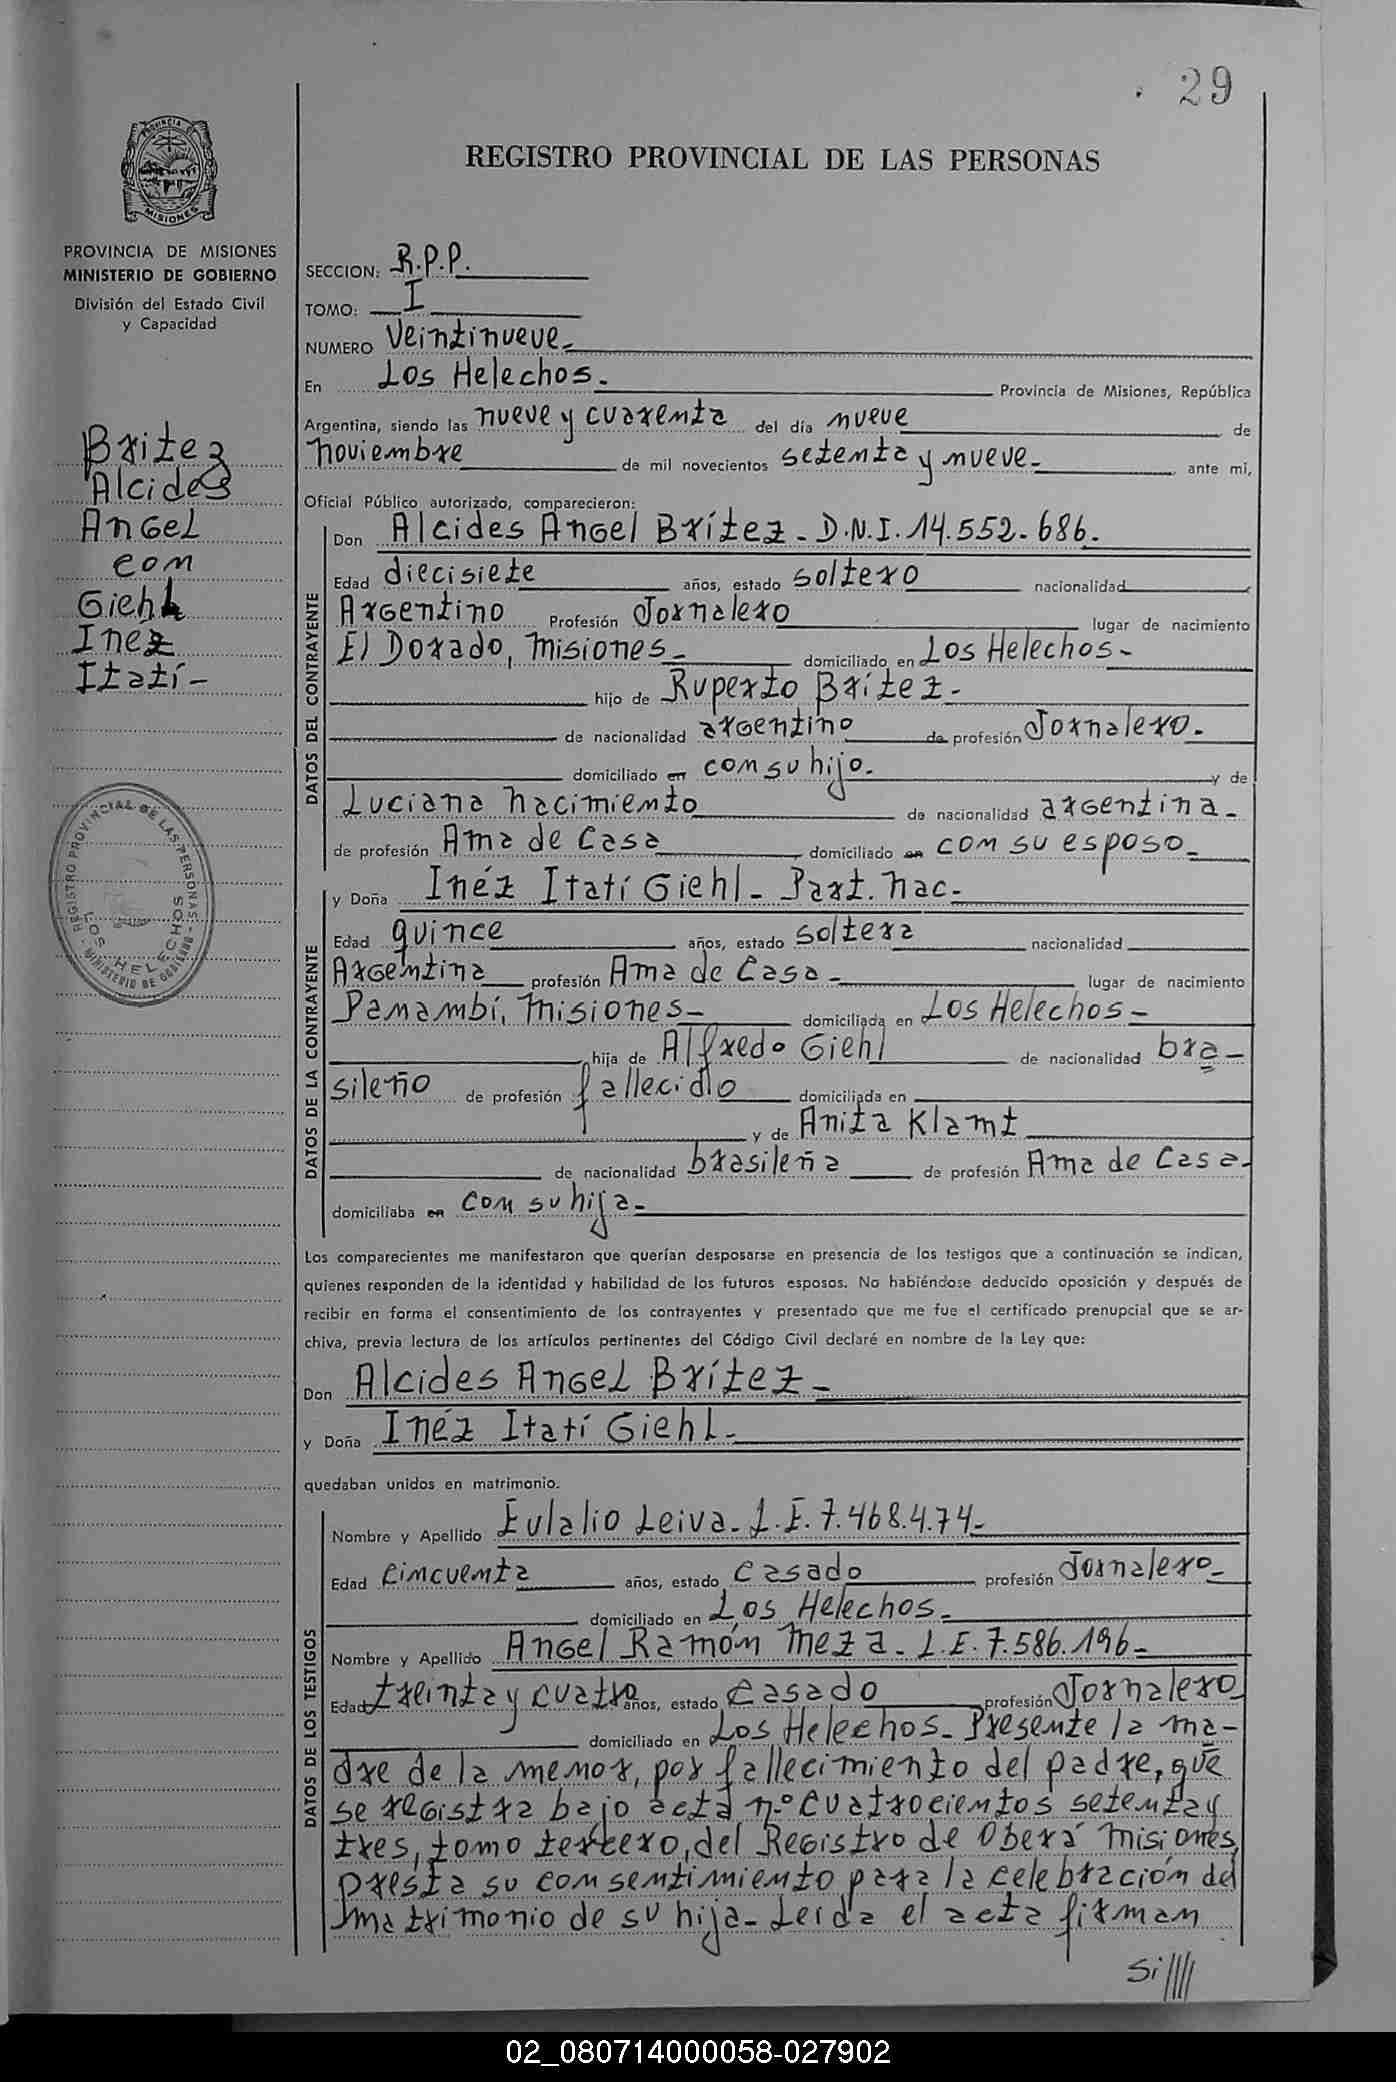 29
REGISTRO PROVINCIAL DE LAS PERSONAS
PROVINCIA DE MISIONES
PROVINCIA DE MISIONES
MINISTERIO DE GOBIERNO
División del Estado Civil
y Capacidad
SECCION: R.P.P.
TOMO: I
NUMERO Veintinueve-
En Los Helechos. Provincia de Misiones, República
Argentina, siendo las nueve y cuarenta del día nueve de
noviembre de mil novecientos setenta y nueve- ante mi,
Oficial Público autorizado, comparecieron:
Britez
Alcides
Angel
con
Giehl
Inez
Itatí-
REGISTRO PROVINCIAL DE LAS PERSONAS - MINISTERIO DE GOBIERNO -
LOS HELECHOS
DATOS DEL CONTRAYENTE
Don Alcides Angel Brítez - D.N.I. 14.552.686.
Edad diecisiete años, estado soltero nacionalidad
Argentino Profesión Jornalero lugar de nacimiento
El Dorado, Misiones- domiciliado en Los Helechos-
hijo de Ruperto Brítez-
de nacionalidad argentino de profesión Jornalero.
domiciliado en con su hijo. y de
Luciana nacimiento de nacionalidad argentina-
de profesión Ama de Casa domiciliado en con su esposo-
DATOS DE LA CONTRAYENTE
y Doña Inéz Itatí Giehl- Part. nac-
Edad quince años, estado soltera nacionalidad
Argentina profesión Ama de Casa- lugar de nacimiento
Panambí, Misiones- domiciliada en Los Helechos-
hija de Alfredo Giehl de nacionalidad bra-
sileño de profesión fallecido domiciliada en
y de Anita Klamt
de nacionalidad brasileña de profesión Ama de Casa-
domiciliaba en con su hija-
Los comparecientes me manifestaron que querían desposarse en presencia de los testigos que a continuación se indican,
quienes responden de la identidad y habilidad de los futuros esposos. No habiéndose deducido oposición y después de
recibir en forma el consentimiento de los contrayentes y presentado que me fue el certificado prenupcial que se ar-
chiva, previa lectura de los artículos pertinentes del Código Civil declaré en nombre de la Ley que:
Don Alcides Angel Brítez-
y Doña Inéz Itatí Giehl-
quedaban unidos en matrimonio.
DATOS DE LOS TESTIGOS
Nombre y Apellido Eulalio Leiva- L.E. 7.468.474-
Edad Cincuenta años, estado casado profesión Jornalero-
domiciliado en Los Helechos-
Nombre y Apellido Angel Ramón Meza- L.E. 7.586.196-
Edad treinta y cuatro años, estado casado profesión Jornalero
domiciliado en Los Helechos- Presente la ma-
dre de la menor, por fallecimiento del padre, que
se registra bajo acta n.º cuatrocientos setenta y
tres, tomo tercero, del Registro de Oberá Misiones,
presta su consentimiento para la celebración del
matrimonio de su hija- Leída el acta firman
Si////
02_080714000058-027902